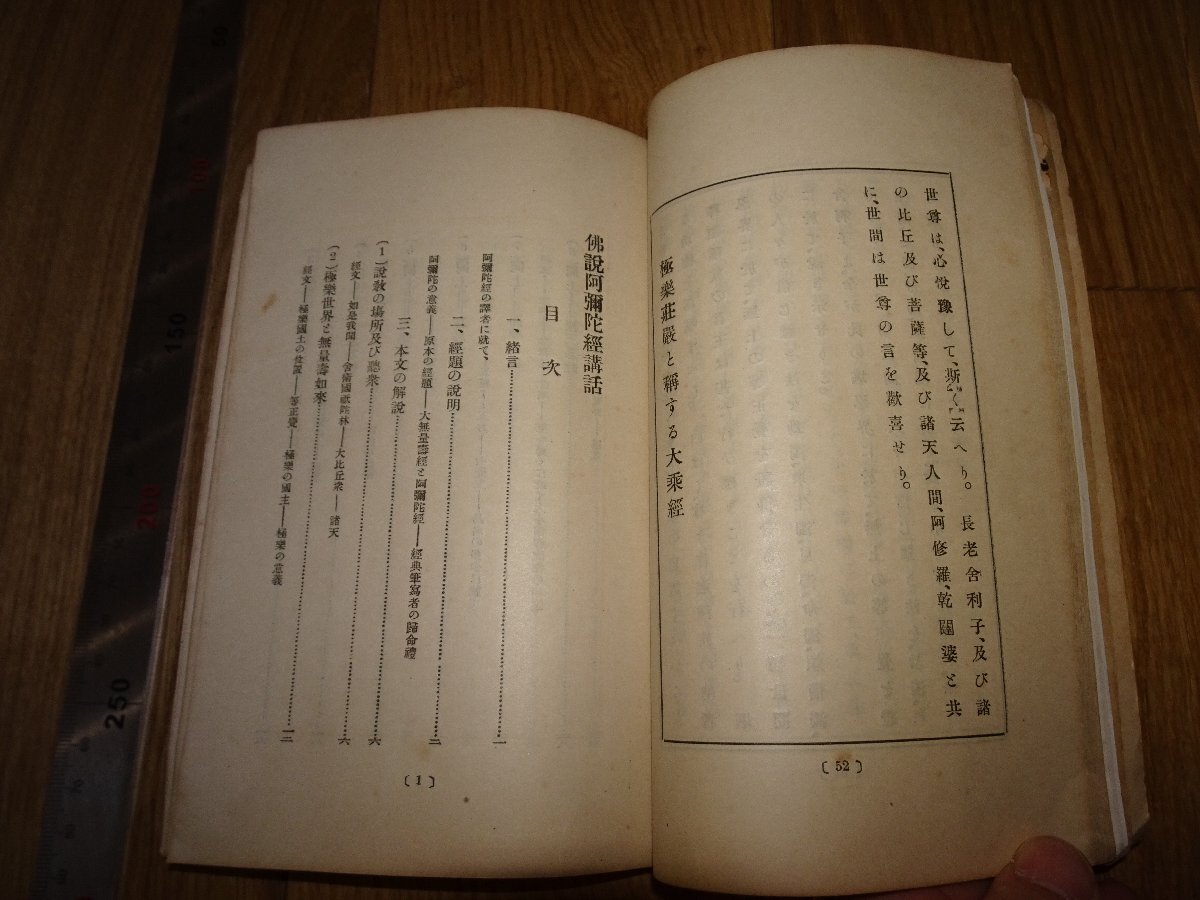 世尊は、心悅豫して、斯く云へり。長老舍利子、及び諸
の比丘及び菩薩等、及び諸天人間、阿修羅、乾闥婆と共
に、世間は世尊の言を歡喜せり。
極樂莊嚴と稱する大乘經
〔52〕
佛說阿彌陀經講話
目次
一、緒言……一
阿彌陀經の譯者に就て、
二、經題の說明……二
阿彌陀の意義——原本の經題——大無量壽經と阿彌陀經——經典筆寫者の歸命禮
三、本文の解說……六
(1)說敎の場所及び聽衆……六
經文——如是我聞——舍衛國祇陀林——大比丘衆——諸天
(2)極樂世界と無量壽如來……一二
經文——極樂國土の位置——等正覺——極樂の國主——極樂の意義
〔1〕
50
100
150
200
250